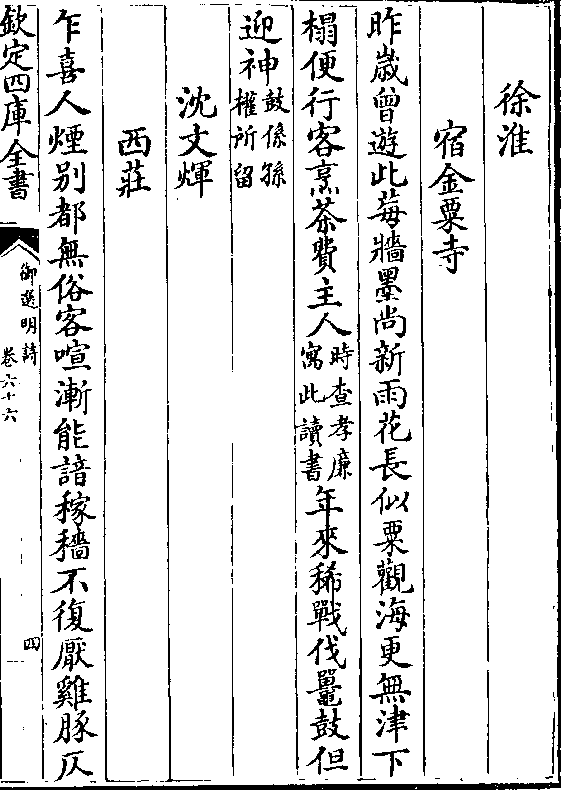 徐淮
宿金粟寺
昨歲曾遊此莓牆墨尚新雨花長似粟觀海更無津下
榻便行客烹茶費主人時查孝廉寓此讀書年來稀戰伐鼉鼓但
迎神鼓係孫權所留
沈文煇
西莊
乍喜人煙別都無俗客喧漸能諳稼穡不復厭雞豚仄
欽定四庫全書
御選明詩
卷六十六
四